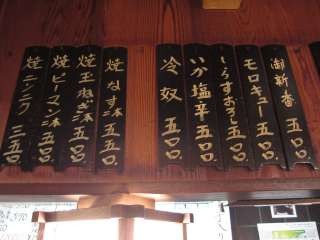 御新香 五〇〇
モロキュー 五〇〇
しらすおろし 五〇〇
いか塩辛 五〇〇
冷奴 五〇〇
焼なす 二本 五五〇
焼玉ねぎ 二本 五五〇
焼ピーマン 二本 五五〇
焼ニンニク 三五〇